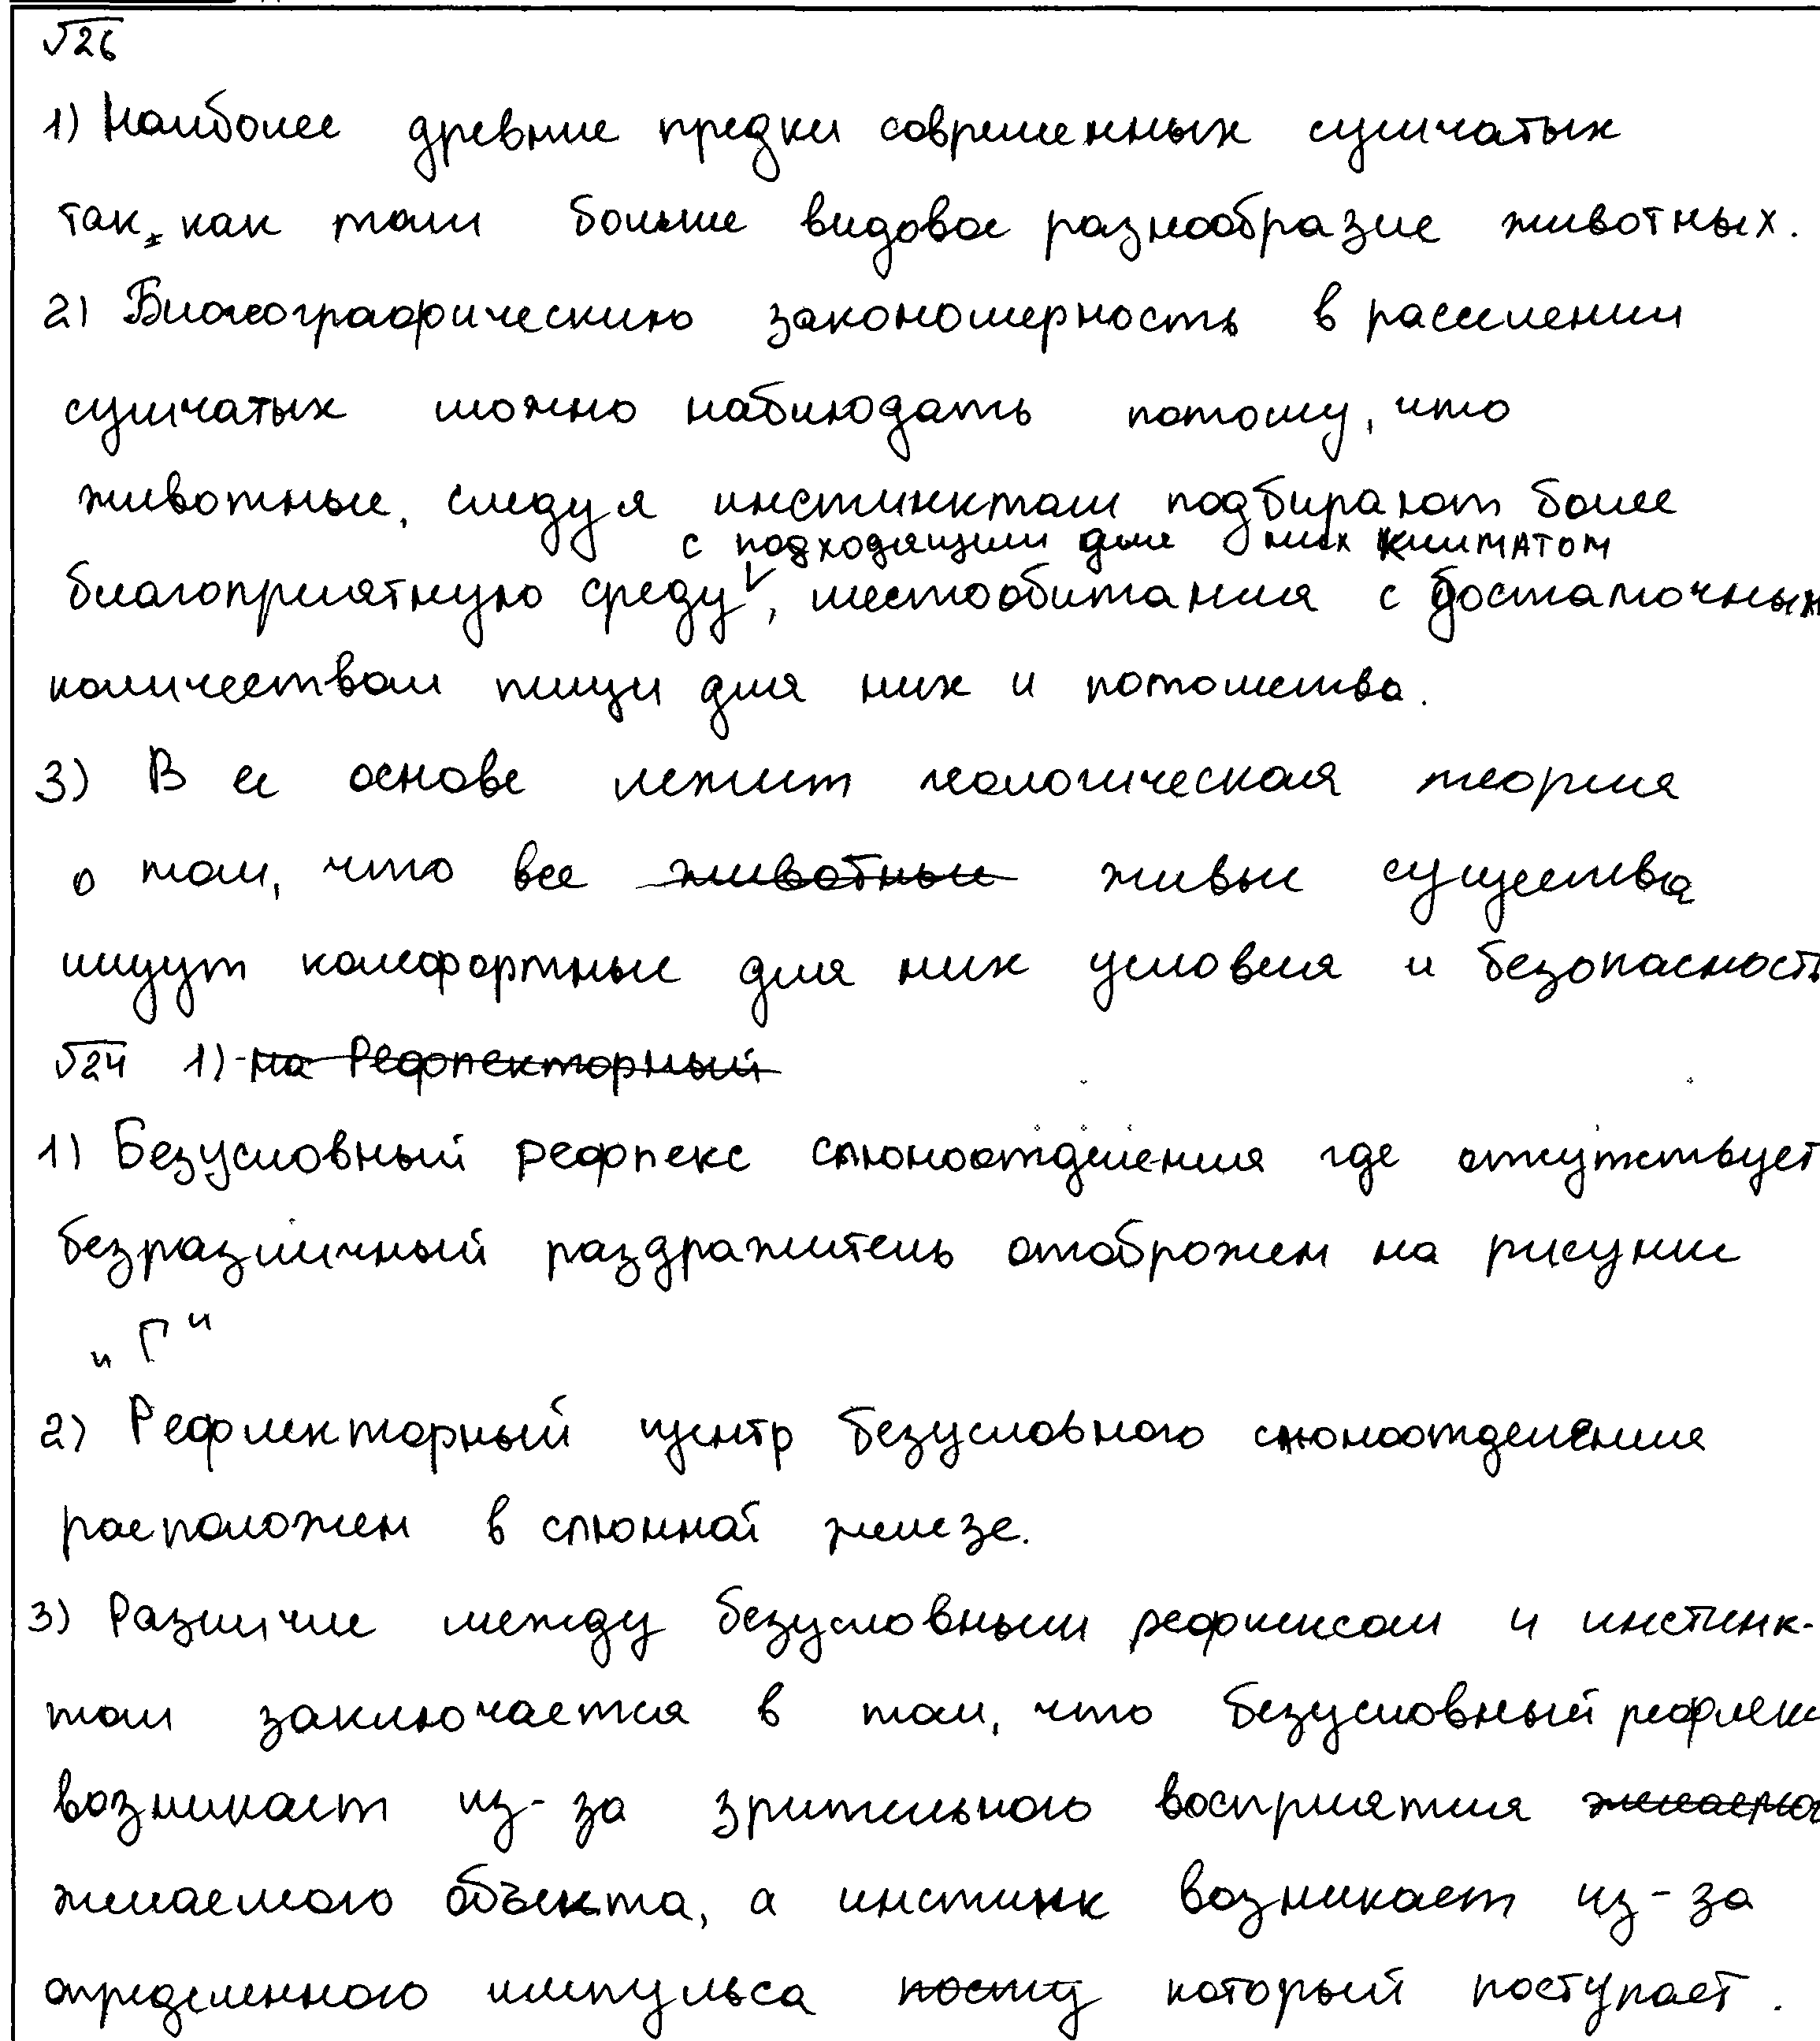 √26
1) Наиболее древние предки современных сумчатых
так как там больше видовое разнообразие животных.
2) Биогеографическию закономерность в расселении
сумчатых можно наблюдать потому, что
животные, следуя инстинктам подбирают более
с подходящими для них климатом
благоприятную среду, местообитания с достаточным
количеством пищи для них и потомства.
3) В ее основе лежит геологическая теория
о том, что все ~~животные~~ живые существа
ищут комфортные для них условия и безопасность
√24 1) ~~на Рефлекторный~~
1) Безусловный рефлекс слюноотделения где отсутствует
безразличный раздражитель отоброжен на рисунке
"Г"
2) Рефлекторный центр безусловного слюноотделения
расположен в слюнной железе.
3) Различие между безусловным рефлексом и инстинк-
том заключается в том, что безусловный рефлекс
возникает из-за зрительного восприятия
желаемого объекта, а инстинк возникает из-за
определенного импульса ~~посту~~ который поступает.